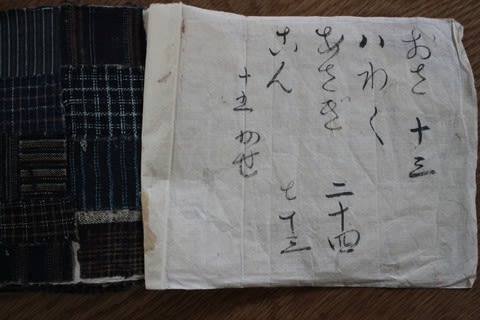 おさ 十三
八わく
あさぎ 二十四
こん 七十三
十五かせ